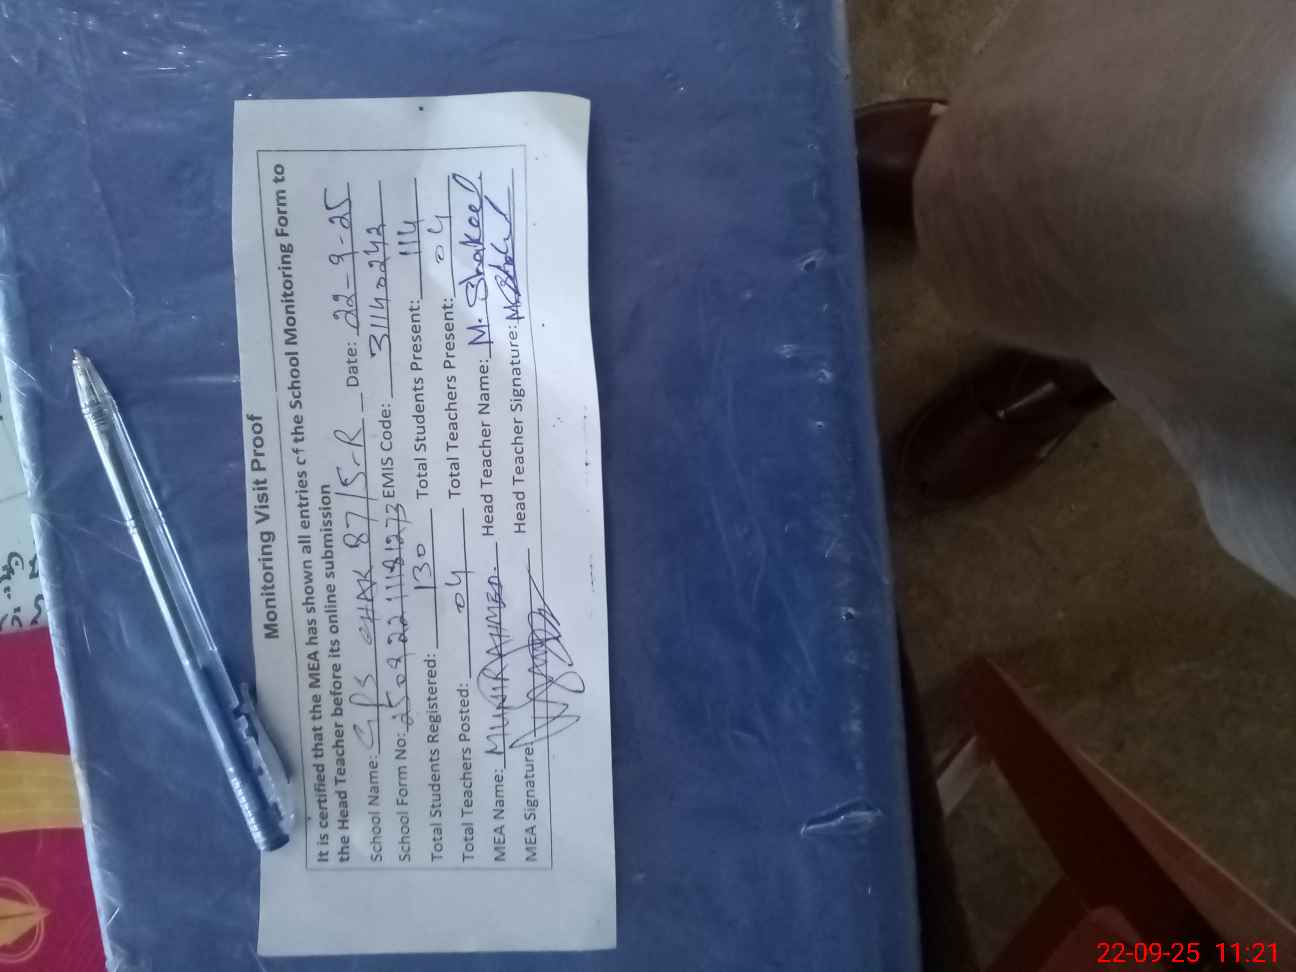 Monitoring Visit Proof
It is certified that the MEA has shown all entries of the School Monitoring Form to
the Head Teacher before its online submission
School Name: GPS CHAK 87/5-R Date: 22-9-25
School Form No: EMIS Code: 31140242
Total Students Registered: 130 Total Students Present: 114
Total Teachers Posted: 04 Total Teachers Present: 04
MEA Name: MUNIR AHMED. Head Teacher Name: M. Shakeel
MEA Signature: Head Teacher Signature:
22-09-25 11:21